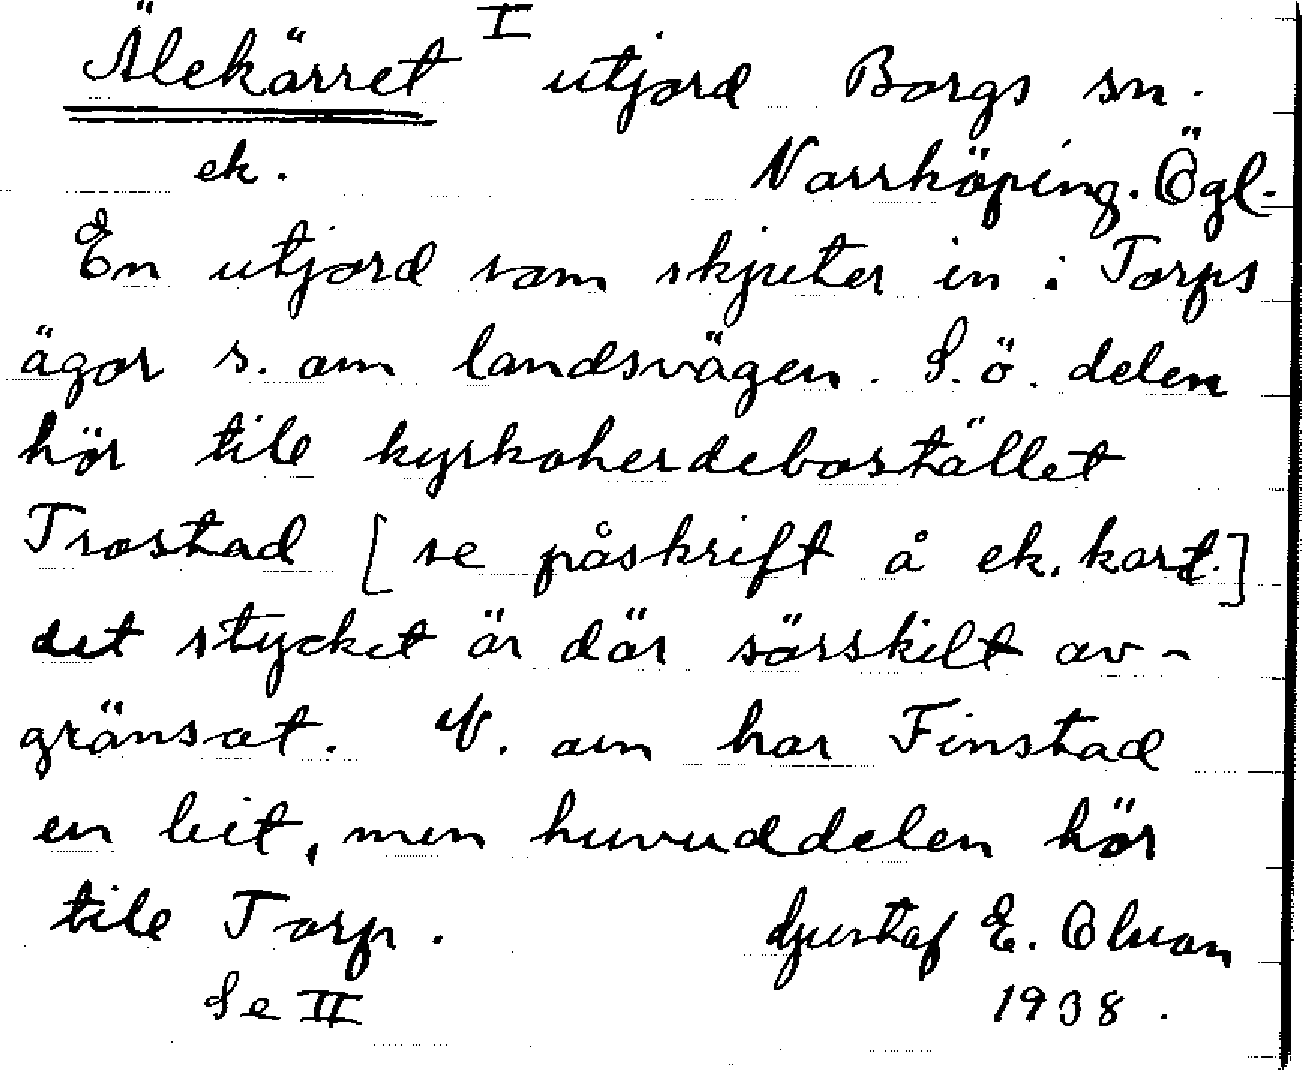 Älekärret I utjord Borgs sn.
ek. Norrköping. Ögl.
En utjord som skjuter in i Torps
ägor s. om landsvägen. S.ö. delen
hör till kyrkoherdebostället
Trostad [se påskrift å ek. kart.]
det stycket är där särskilt av-
gränsat. V. om har Finstad
en bit, men huvuddelen hör
till Torp. Gustaf E. Olson
Se II 1938.